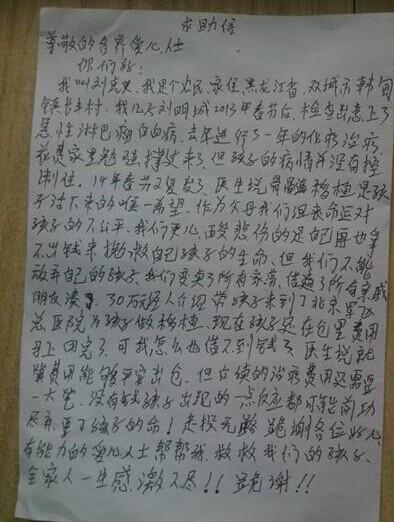 求助信
尊敬的各界爱心人士
你们好:
我叫刘克义、我是个农民、家住黑龙江省、双城市韩甸
镇长丰村、我儿子刘明城2013年春节后、检查出患上了
急性淋巴瘤白血病、去年进行了一年的化疗治疗
花费家里勉强撑过来了但孩子的病情并没有控
制住。14年春节又复发了、医生说骨髓移植是孩
子活下来的唯一希望、作为父母我们没表命运对
孩子的不公平、我们更心酸悲伤的是自己再也拿
不出钱来拯救自己孩子的生命、但我们不能
放弃自己的孩子、我们变卖了所有家荡、借遍了所有亲戚
朋友凑了、30万经人介绍带孩子来到了北京军区
总医院为孩子做移植、现在孩子还在仓里费用
马上用完了、可我怎么也借不到钱了、医生说就
算费用能够平安出仓、但后续的治疗费用还需要
一大笔、没有钱孩子出现的一点反应都可能前功
尽弃要了孩子的命!走投无路跪谢各位好心
有能力的爱心人士帮帮我、救救我们的孩子、
全家人一生感激不尽!!跪谢!!